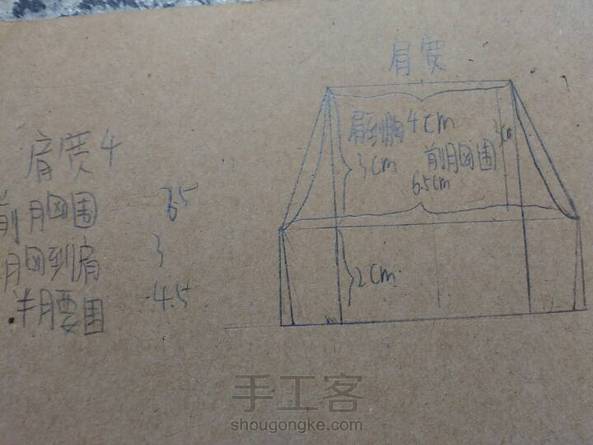 肩宽
肩宽 4
前胸围 6.5
胸到肩 3
半腰围 4.5
肩到胸 4cm
3cm 前胸围
6.5cm
2cm
手工客
shougongke.com